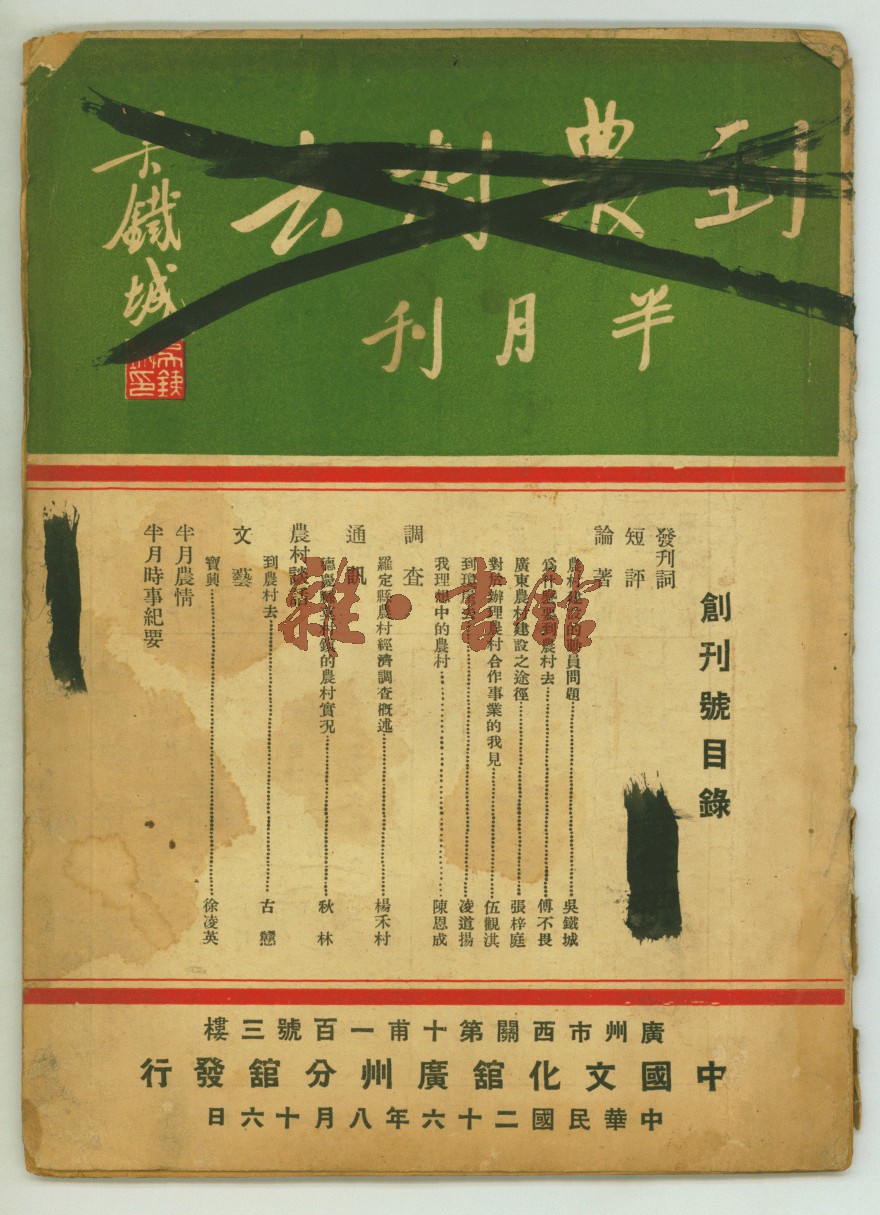 到農村去
半月刊
吳鐵城
創刊號目錄
發刊詞
短評
論著
農村建設的動員問題 吳鐵城
到農村去 傅不畏
廣東農村建設之途徑 張梓庭
對於辦理農村合作事業的我見 伍觀淇
凌道揚
我理想中的農村 陳恩成
調查
羅定縣農村經濟調查概述 楊禾村
通訊
的農村實況 秋林
農村談話
到農村去 古戀
文藝
寶興 徐凌英
半月農情
半月時事紀要
雜·書館
廣州市西關第十甫一百號三樓
中國文化舘廣州分舘發行
中華民國二十六年八月十六日